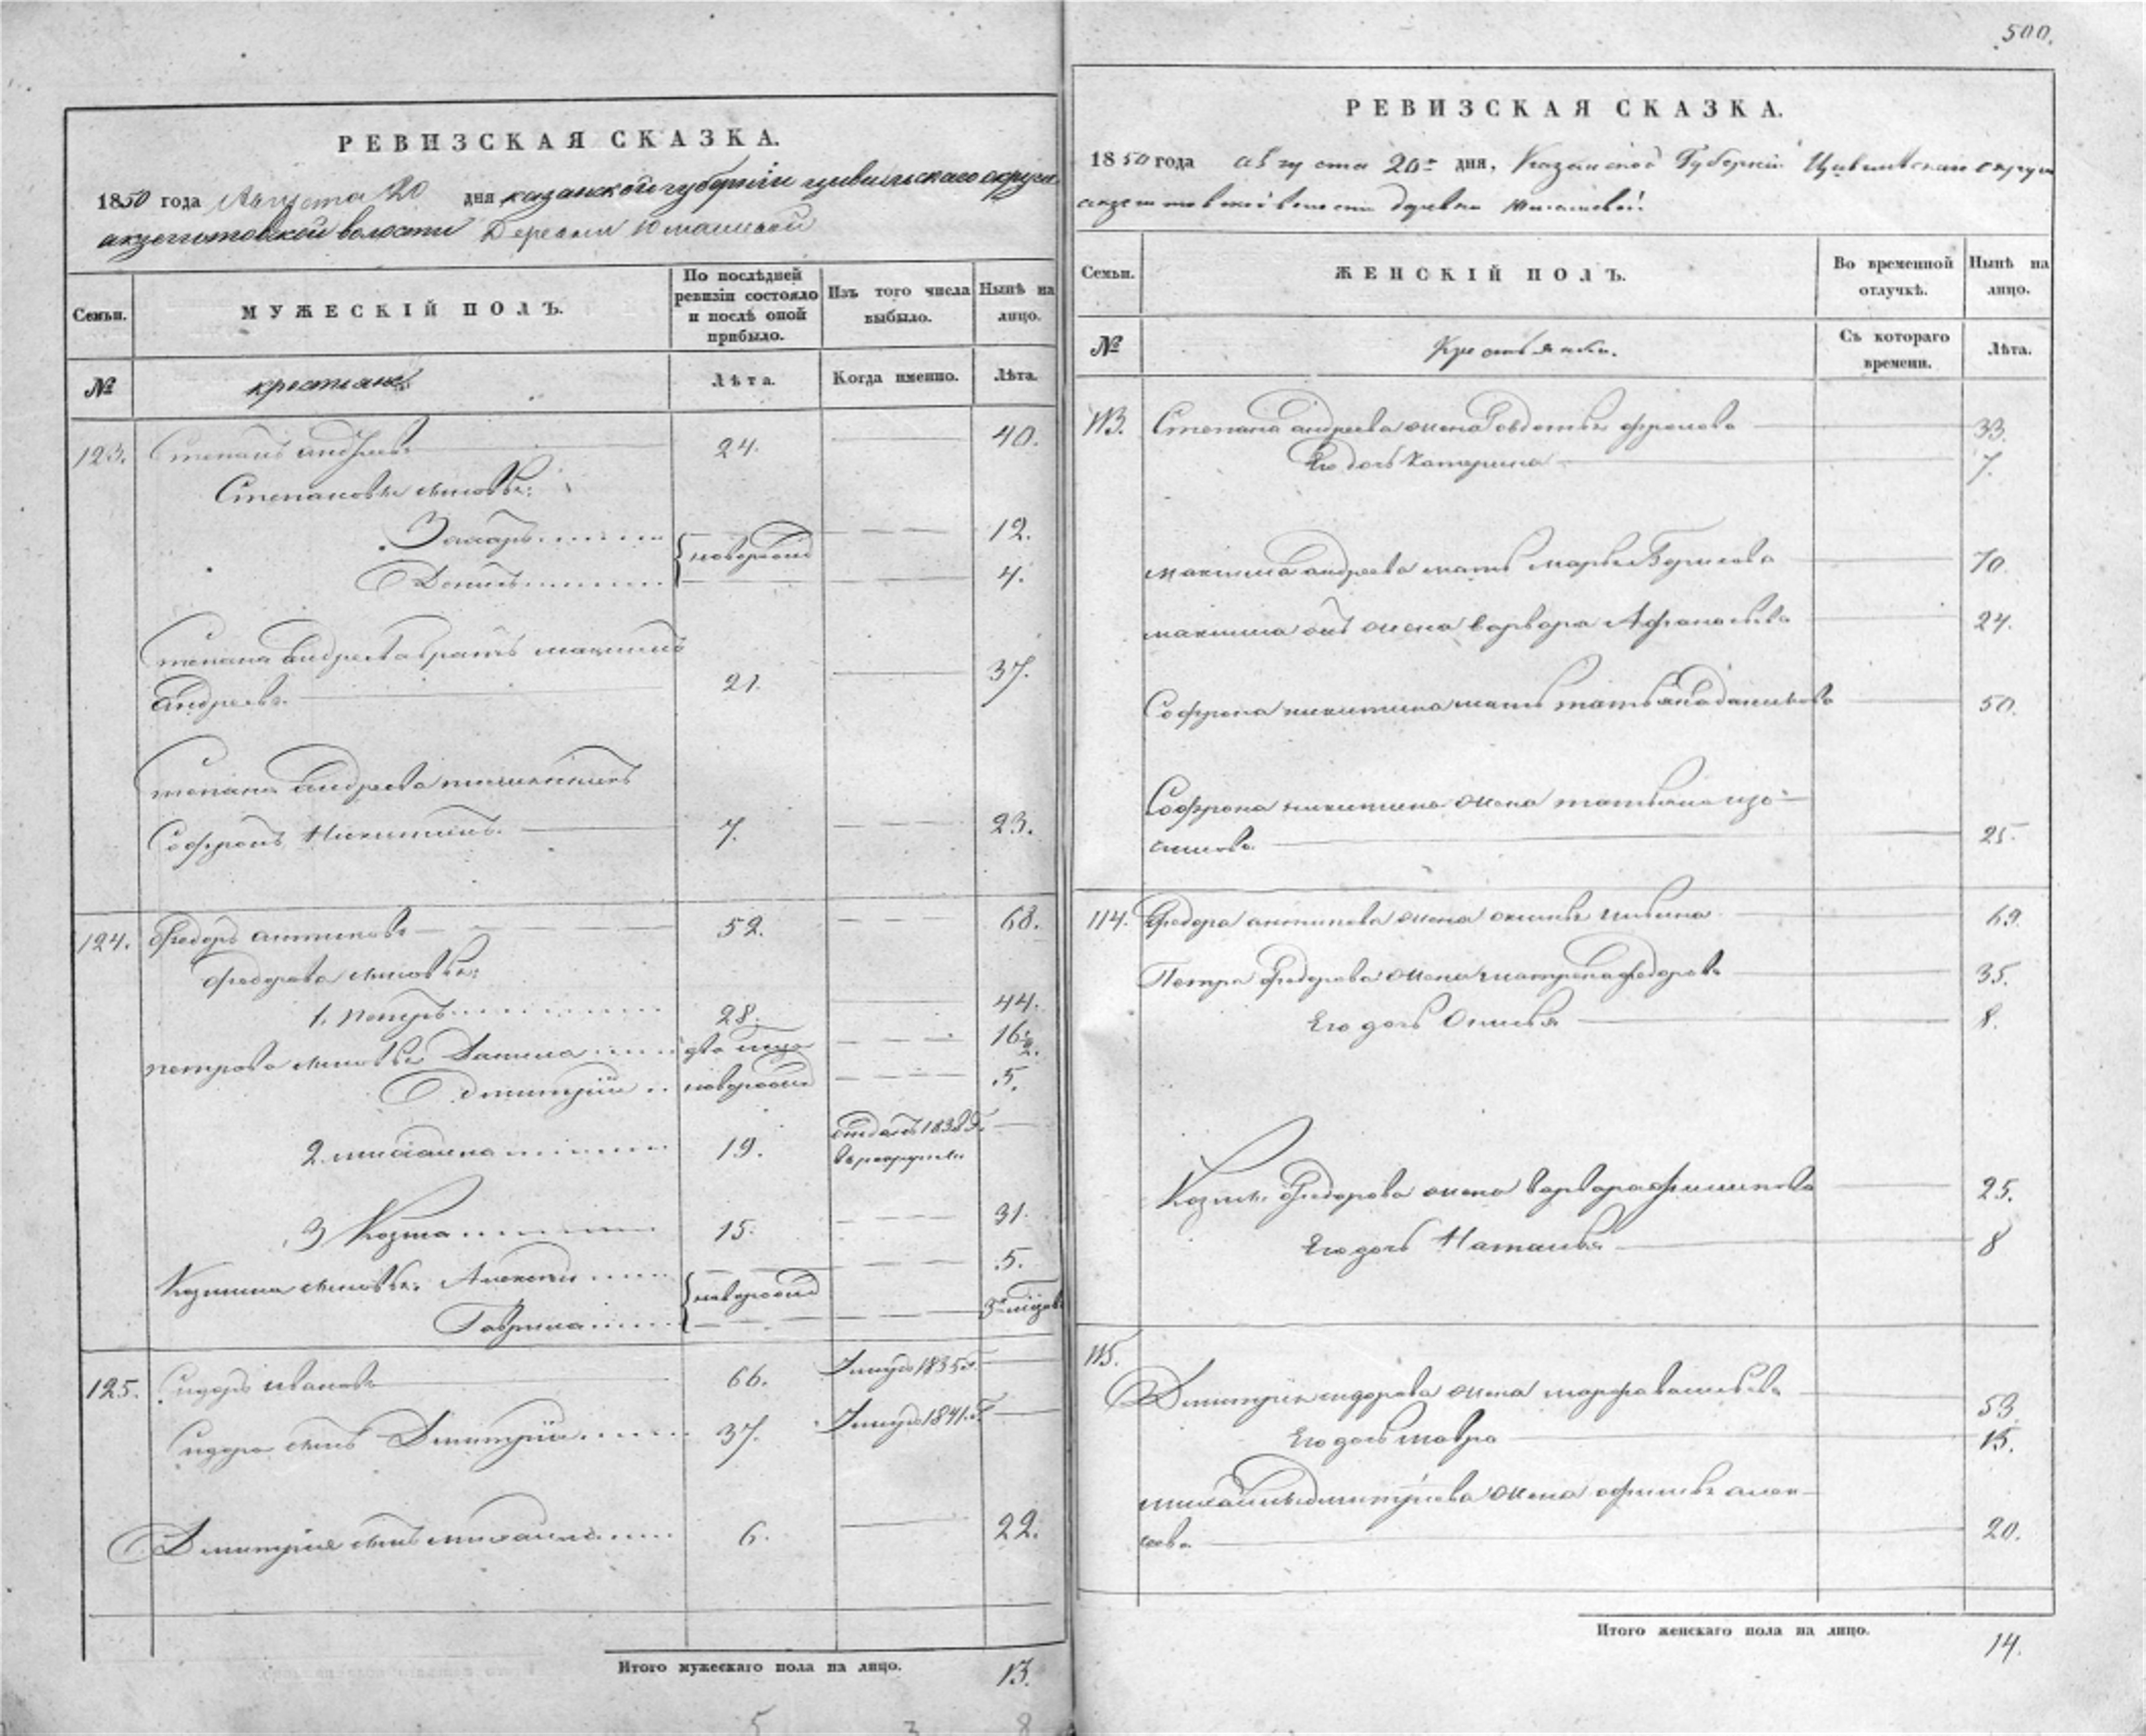 500.
РЕВИЗСКАЯ СКАЗКА.
1850 года Августа 20 дня казанской губерніи цивильскаго округа
акзегитовской волости Деревни Юманлыхи
Семьи. МУЖЕСКІЙ ПОЛЪ. По послѣдней ревизіи состояло и послѣ оной прибыло. Изъ того числа выбыло. Нынѣ на лицо.
№ крестьяне Лѣта. Когда именно. Лѣта.
123. Степанъ андреевъ 24. 40.
Степановы сыновья:
Захаръ 12.
новорожд
Данилъ 4.
Степана андреева братъ максимъ
андреевъ. 21. 37.
Степана андреева племянникъ
Софронъ Никитинъ. 7. 23.
124. Федоръ антиповъ 52. 68.
Федорова сыновья:
1. петръ 28. 44.
петрова сыновья Данила 16½.
Дмитрій новорожд 5.
2 михаила 19. отданъ 1838 г.
в рекруты
3 Козма 15. 31.
Козмина сыновья. Алексей 5.
новорожд
Гаврила 3 м
125. Сидоръ ивановъ 66. Умеръ 1835 г.
Сидора сынъ Дмитрій 37. Умеръ 1841 г.
Дмитрія сынъ михаила 6. 22.
Итого мужескаго пола на лицо. 13.
РЕВИЗСКАЯ СКАЗКА.
1850 года августа 20 дня, Казанской Губерніи Цивильскаго округа
волости деревни
Семьи. ЖЕНСКІЙ ПОЛЪ. Во временной отлучкѣ. Нынѣ на лицо.
№ Крестьянки. Съ котораго времени. Лѣта.
113. Степана андреева жена овдотья фролова 33.
Его дочь катерина 7.
максима андреева мать марья Борисова 70.
максима жена варвара Афанасьева 24.
Софрона никитина мать татьяна данилова 50.
Софрона никитина жена татьяна
25.
114. Федора антипова жена 69.
Петра Федорова жена матрена федорова 35.
Его дочь 8.
Козмы Федорова жена варвара филипова 25.
Его дочь Наталья 8
115. Дмитрія сидорова жена марфа васильева 53.
Его дочь мавра 15.
михаилы дмитріева жена офимья алек-
сеева 20.
Итого женскаго пола на лицо. 14.